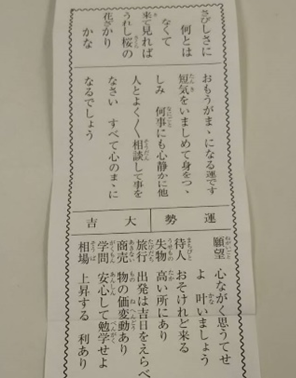 さびしさに
何とは
なくて
来て見れば
うれし桜の
花ざかり
かな
おもうがまゝになる運です
短気をいましめて身をつゝ
しみ 何事にも心静かに他
人とよく〳〵相談して事を
なさい すべて心のまゝに
なるでしょう
運勢
大吉
願望 心ながく思うてせ
よ 叶いましょう
待人 おそけれど来る
失物 高い所にあり
旅行 出発は吉日をえらべ
商売 物の価変動あり
学問 安心して勉学せよ
相場 上昇する 利あり